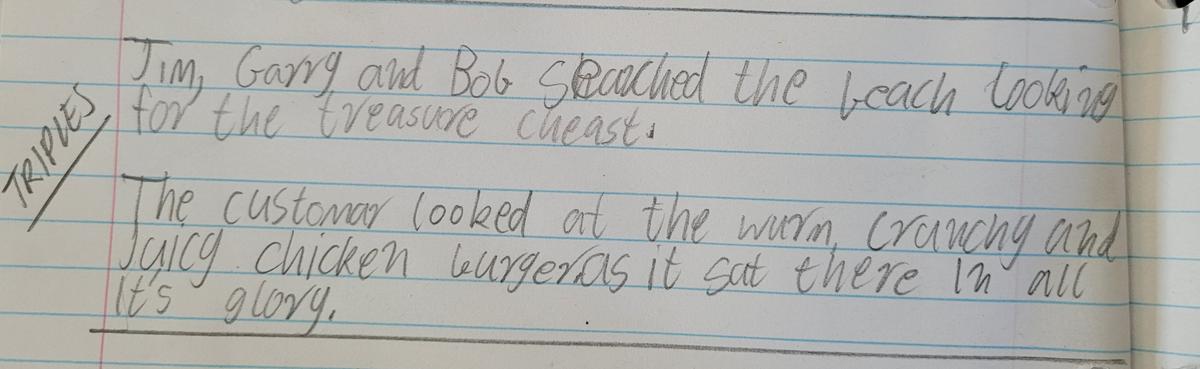 TRIPLES
Jim, Garry and Bob Searched the beach looking
for the treasure cheast.
The customar looked at the wurm, crunchy and
Juicy chicken burger as it sat there in all
it's glory.